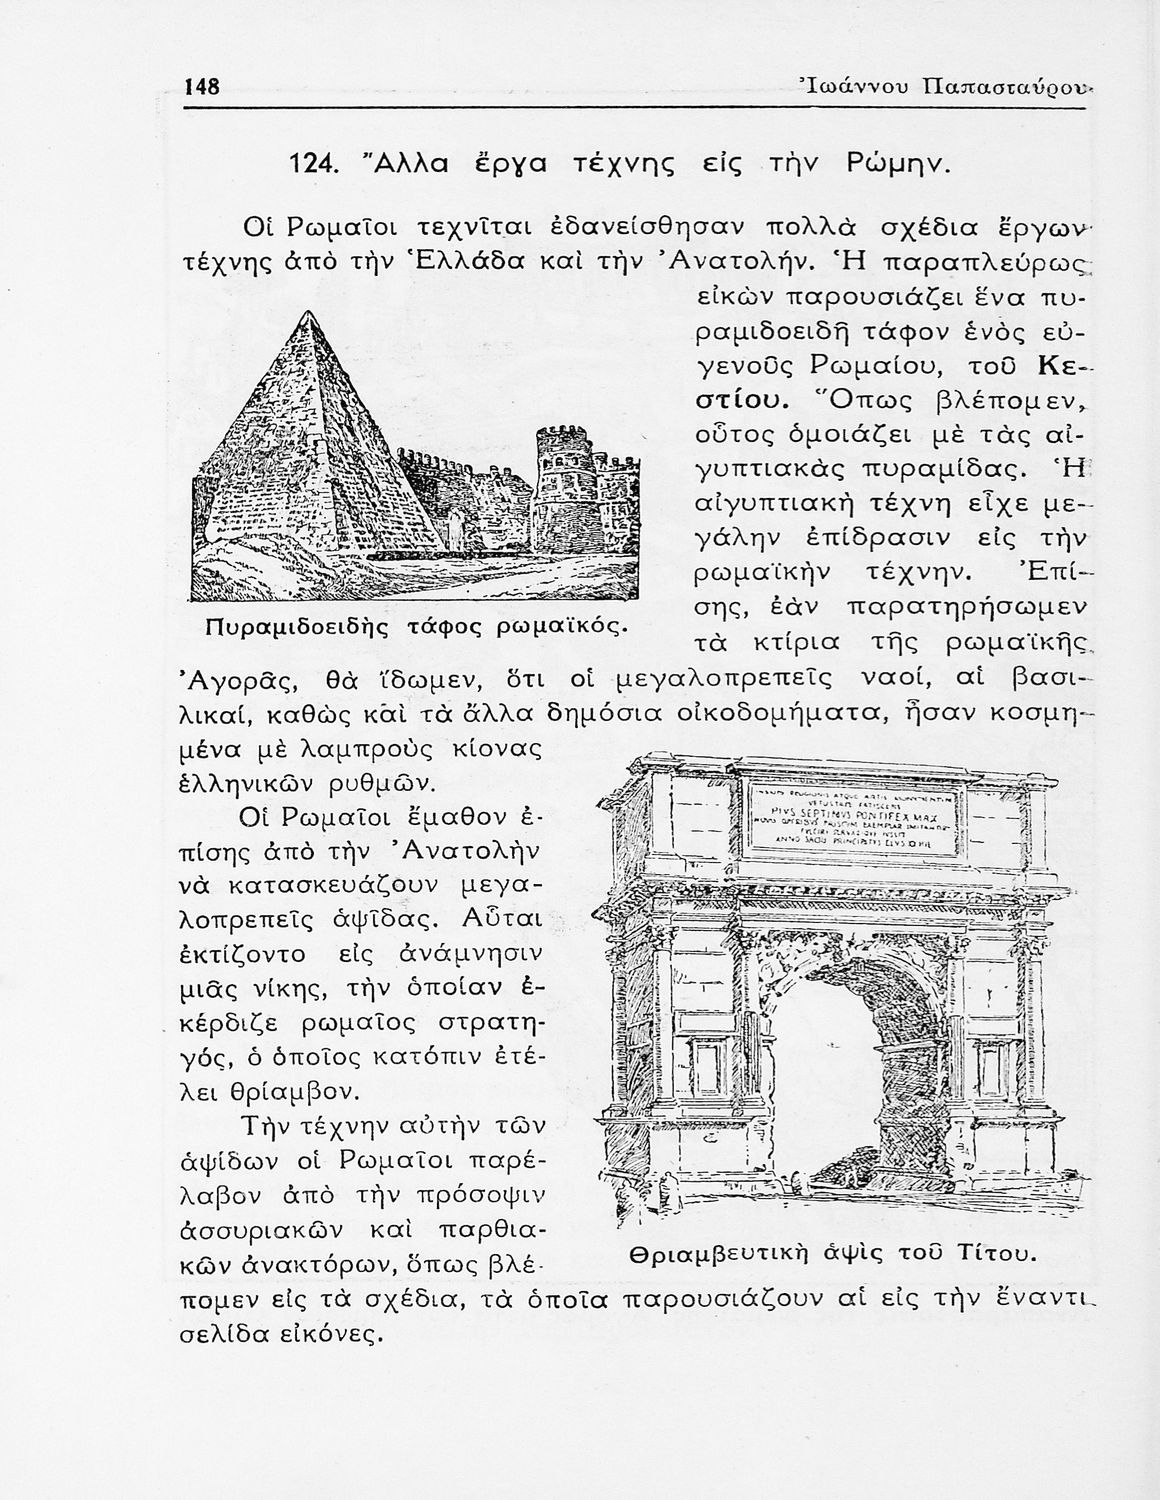 148
Ἰωάννου Παπασταύρου
124. Ἄλλα ἔργα τέχνης εἰς τὴν Ρώμην.
Οἱ Ρωμαῖοι τεχνῖται ἐδανείσθησαν πολλὰ σχέδια ἔργων
τέχνης ἀπὸ τὴν Ἑλλάδα καὶ τὴν Ἀνατολήν. Ἡ παραπλεύρως
εἰκὼν παρουσιάζει ἕνα πυ-
ραμιδοειδῆ τάφον ἑνὸς εὐ-
γενοῦς Ρωμαίου, τοῦ Κε-
στίου. Ὅπως βλέπομεν,
οὗτος ὁμοιάζει μὲ τὰς αἰ-
γυπτιακὰς πυραμίδας. Ἡ
αἰγυπτιακὴ τέχνη εἶχε με-
γάλην ἐπίδρασιν εἰς τὴν
ρωμαϊκὴν τέχνην. Ἐπί-
σης, ἐὰν παρατηρήσωμεν
τὰ κτίρια τῆς ρωμαϊκῆς
Πυραμιδοειδὴς τάφος ρωμαϊκός.
Ἀγορᾶς, θὰ ἴδωμεν, ὅτι οἱ μεγαλοπρεπεῖς ναοί, αἱ βασι-
λικαί, καθὼς καὶ τὰ ἄλλα δημόσια οἰκοδομήματα, ἦσαν κοσμη-
μένα μὲ λαμπροὺς κίονας
ἑλληνικῶν ρυθμῶν.
Οἱ Ρωμαῖοι ἔμαθον ἐ-
πίσης ἀπὸ τὴν Ἀνατολὴν
νὰ κατασκευάζουν μεγα-
λοπρεπεῖς ἁψῖδας. Αὗται
ἐκτίζοντο εἰς ἀνάμνησιν
μιᾶς νίκης, τὴν ὁποίαν ἐ-
κέρδιζε ρωμαῖος στρατη-
γός, ὁ ὁποῖος κατόπιν ἐτέ-
λει θρίαμβον.
Τὴν τέχνην αὐτὴν τῶν
ἁψίδων οἱ Ρωμαῖοι παρέ-
λαβον ἀπὸ τὴν πρόσοψιν
ἀσσυριακῶν καὶ παρθια-
κῶν ἀνακτόρων, ὅπως βλέ-
πομεν εἰς τὰ σχέδια, τὰ ὁποῖα παρουσιάζουν αἱ εἰς τὴν ἔναντι
σελίδα εἰκόνες.
RELIGIONIS ATQVE ARTIS
VETVSTATE FATISCENS
PIVS SEPTIMVS PONTIFEX MAX
ANNO SACRI PRINCIPATVS EIVS
Θριαμβευτικὴ ἁψὶς τοῦ Τίτου.